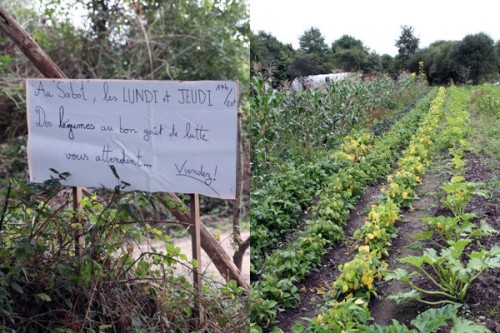 Au Sabot, les LUNDI et JEUDI 17H/20H
Des légumes au bon goût de lutte
vous attendent... Viendez!